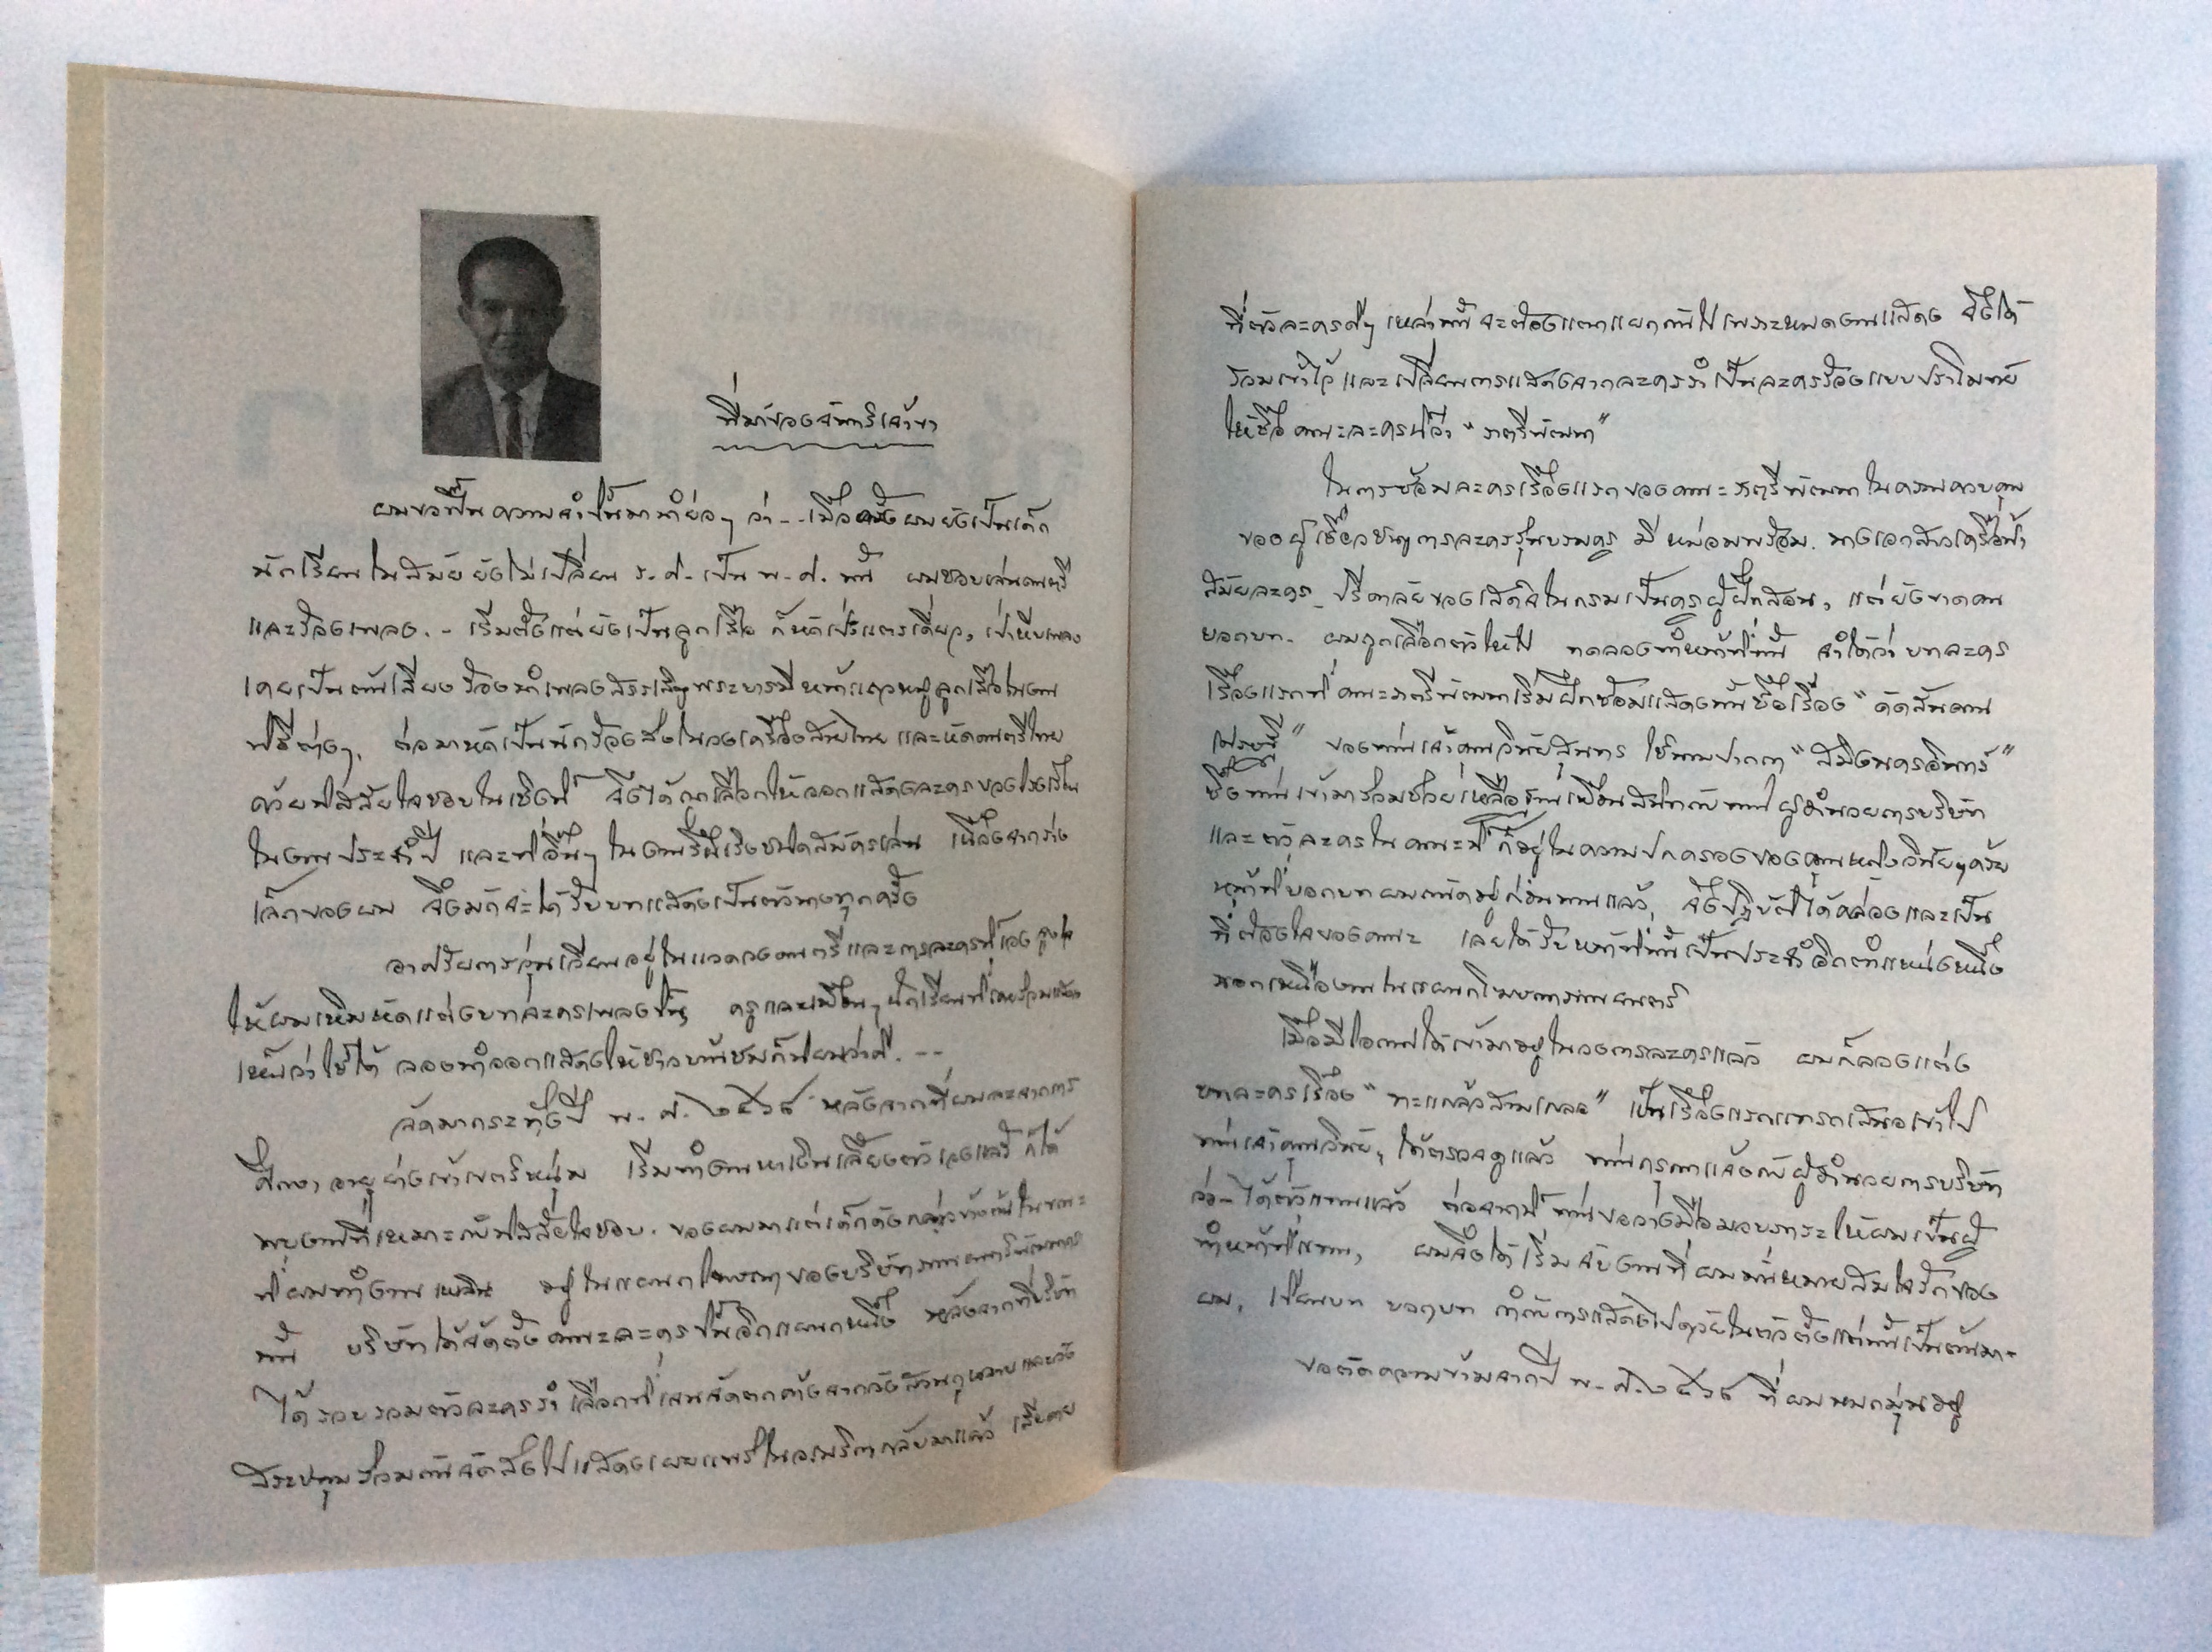 ที่มาของจันทร์เจ้าขา
ผมขอฟื้นความจำขึ้นมาย่อๆ ว่า -- เมื่อครั้งผมยังเป็นเด็ก
นักเรียนในสมัยยังไม่เปลี่ยน ร.ศ. เป็น พ.ศ. นั้น ผมชอบเล่นดนตรี
และร้องเพลง. - เริ่มตั้งแต่ยังเป็นลูกเสือ ก็หัดเป่าแตรเดี่ยว, เป่าหีบเพลง
เคยเป็นต้นเสียงร้องนำเพลงสรรเสริญพระบารมีหน้าแถวหมู่ลูกเสือในงาน
พิธีต่างๆ, ต่อมาหัดเป็นนักร้องส่งในวงเครื่องสายไทย และหัดดนตรีไทย
ด้วยนิสสัยใจชอบในเชิงนี้ จึงได้ถูกเลือกให้ออกแสดงละครของโรงเรียน
ในงานประจำปี และที่อื่นๆ ในงานรื่นเริงชนิดสมัครเล่น เนื่องจากร่าง
เล็กของผม จึงมักจะได้รับบทแสดงเป็นตัวนางทุกครั้ง
อาศรัยการวุ่นเวียนอยู่ในแวดวงดนตรีและการละครนี่เอง จูงใจ
ให้ผมเหิมหัดแต่งบทละครเพลงขึ้น ครูและเพื่อนๆ นักเรียนที่เคยร่วมแสดง
เห็นว่าใช้ได้ ลองนำออกแสดงให้ชาวบ้านชมก็นิยมว่าดี. --
ลัดมากระทั่งปี พ.ศ. ๒๔๖๘ หลังจากที่ผมละจากการ
ศึกษา อายุย่างเข้าเขตรหนุ่ม เริ่มทำงานหาเงินเลี้ยงตัวเองแล้ว ก็ได้
พบงานที่เหมาะกับนิสสัยใจชอบ. ของผมมาแต่เด็กดังกล่าวข้างต้น ในขณะ
ที่ผมทำงาน อยู่ในแผนกโฆษณาของบริษัทภาพยนตร์พัฒนากร
นั้น บริษัทได้จัดตั้งคณะละครขึ้นอีกแผนกหนึ่ง หลังจากที่บริษัท
ได้รวบรวมตัวละครรำ เลือกที่เจนจัดตกค้างจากวังสวนกุหลาบ และวัง
สระปทุม ร่วมกันจัดส่งไปแสดงเผยแพร่ในอเมริกากลับมาแล้ว เสียดาย
ที่ตัวละครดีๆ เหล่านี้ จะต้องแตกแยกกันไปเพราะหมดงานแสดง จึงได้
รวมเข้าไว้ และเปลี่ยนการแสดงจากละครรำเป็นละครร้องแบบปราโมทัย
ให้ชื่อคณะละครนี้ว่า "ราตรีพัฒนา"
ในการซ้อมละครเรื่องแรกของคณะราตรีพัฒนา ในความควบคุม
ของผู้เชี่ยวชาญการละครรุ่นบรมครู มี หม่อมพร้อม. นางเอกสาวเครือฟ้า
สมัยละคร ปรีดาลัยของเสด็จในกรมเป็นครูผู้ฝึกสอน, แต่ยังขาดคน
บอกบท. ผมถูกเลือกตัวให้ไป ทดลองทำหน้าที่นี้ จำได้ว่า บทละคร
เรื่องแรกที่คณะราตรีพัฒนาเริ่มฝึกซ้อมแสดงนั้นชื่อเรื่อง "ดัดสันดาน
เศรษฐี" ของท่านเจ้าคุณวินัยสุนทร ใช้นามปากกา "สมิงนครอินทร์"
ซึ่งท่านเข้ามาร่วมช่วยเหลือฐานเพื่อนสนิทกับท่านผู้อำนวยการบริษัท
และตัวละครในคณะนี้ ก็อยู่ในความปกครองของคุณหญิงวินัยฯ ด้วย
หน้าที่บอกบทผมถนัดอยู่ก่อนนานแล้ว, จึงปฏิบัติได้คล่องและเป็น
ที่ต้องใจของคณะ เลยได้รับหน้าที่นี้เป็นประจำอีกตำแหน่งหนึ่ง
นอกเหนืองานในแผนกโฆษณาภาพยนตร์
เมื่อมีโอกาสได้เข้ามาอยู่ในวงการละครแล้ว ผมก็ลองแต่ง
บทละครเรื่อง "ทะแกล้วสามเกลอ" เป็นเรื่องแรกแทรกเสนอเข้าไป
ท่านเจ้าคุณวินัยฯ ได้ตรวจดูแล้ว ท่านกรุณาแจ้งกับผู้อำนวยการบริษัท
ว่า - ได้ตัวแทนแล้ว ต่อจากนี้ ท่านขอวางมือมอบภาระให้ผมเป็นผู้
ทำหน้าที่แทน, ผมจึงได้เริ่มจับงานที่ผมมั่นหมายสมใจรักของ
ผม, เขียนบท บอกบท กำกับการแสดงไปด้วยในตัวตั้งแต่นั้นเป็นต้นมา-
ขอตัดความข้ามจากปี พ.ศ. ๒๔๖๘ ที่ผมหมกมุ่นอยู่